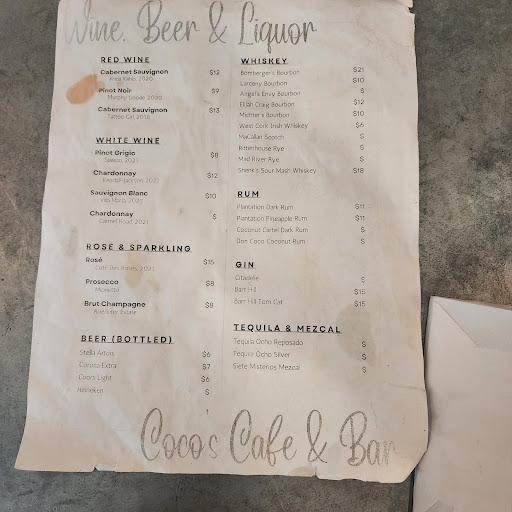 Wine, Beer & Liquor
RED WINE
Cabernet Sauvignon $12
2020
Pinot Noir $9
Murphy Goode 2020
Cabernet Sauvignon $13
Tattoo Girl, 2018
WHITE WINE
Pinot Grigio $8
2021
Chardonnay $12
Kendall-Jackson, 2020
Sauvignon Blanc $10
Villa Maria, 2020
Chardonnay $
Carmel Road, 2021
ROSÉ & SPARKLING
Rosé $15
Cote Des Roses, 2021
Prosecco $8
Mionetto
Brut Champagne $8
Roederer Estate
BEER (BOTTLED)
Stella Artois $6
Corona Extra $7
Coors Light $6
Heineken $
WHISKEY
Bomberger's Bourbon $21
Larceny Bourbon $10
Angel's Envy Bourbon $
Elijah Craig Bourbon $12
Michter's Bourbon $10
West Cork Irish Whiskey $6
MaCallan Scotch $
Rittenhouse Rye $
Mad River Rye $
Shenk's Sour Mash Whiskey $18
RUM
Plantation Dark Rum $11
Plantation Pineapple Rum $11
Coconut Cartel Dark Rum $
Don Coco Coconut Rum $
GIN
Citadelle $
Barr Hill $15
Barr Hill Tom Cat $15
TEQUILA & MEZCAL
Tequila Ocho Reposado $
Tequila Ocho Silver $
Siete Misterios Mezcal $
Coco's Cafe & Bar